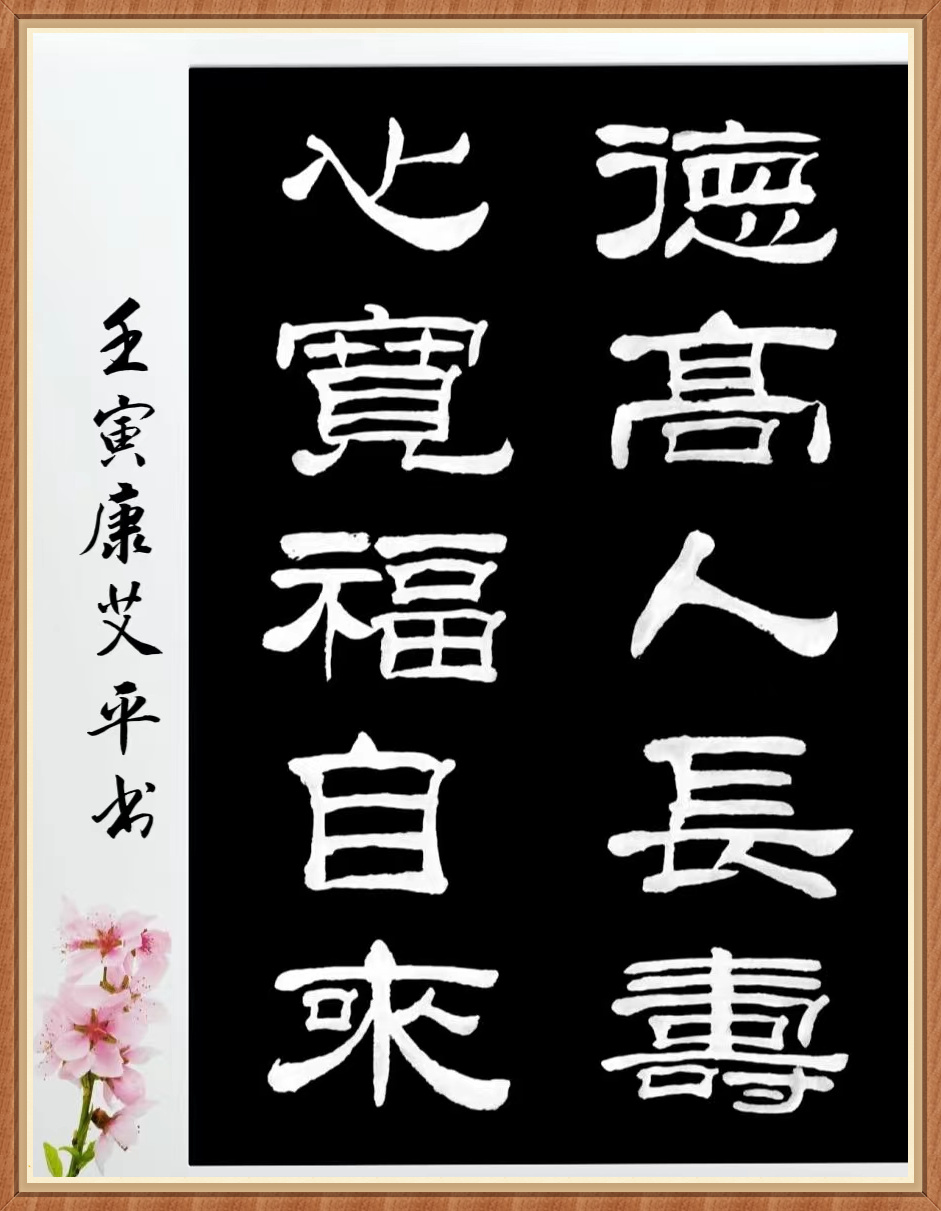 德高人長壽
心寬福自來
壬寅康艾平书